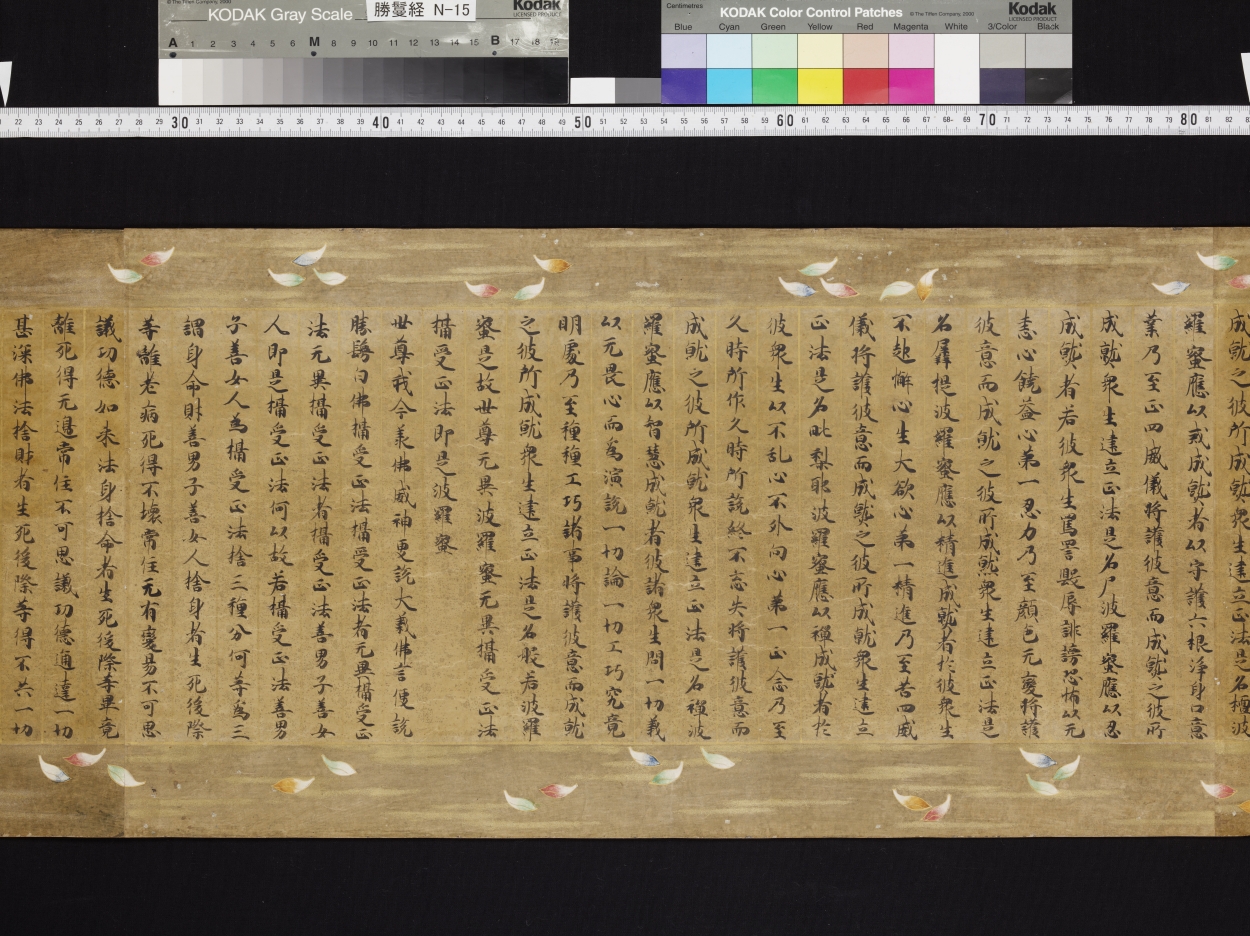 KODAK Gray Scale
© The Tiffen Company, 2000
Kodak
LICENSED PRODUCT
勝鬘経 N-15
A 1 2 3 4 5 6 M 8 9 10 11 12 13 14 15 B 17 18 19
Centimetres
KODAK Color Control Patches
© The Tiffen Company, 2000
Kodak
LICENSED PRODUCT
Blue Cyan Green Yellow Red Magenta White 3/Color Black
22 23 24 25 26 27 28 29 30 31 32 33 34 35 36 37 38 39 40 41 42 43 44 45 46 47 48 49 50 51 52 53 54 55 56 57 58 59 60 61 62 63 64 65 66 67 68 69 70 71 72 73 74 75 76 77 78 79 80 81 82
成就之彼所成就衆生建立正法是名檀波
羅蜜應以戒成就者以守護六根淨身口意
業乃至正四威儀將護彼意而成就之彼所
成就衆生建立正法是名尸波羅蜜應以忍
成就者若彼衆生罵詈毀辱誹謗恐怖以无
恚心饒益心第一忍力乃至顏色无變將護
彼意而成就之彼所成就衆生建立正法是
名羼提波羅蜜應以精進成就者於彼衆生
不起懈心生大欲心第一精進乃至若四威
儀將護彼意而成就之彼所成就衆生建立
正法是名毗梨耶波羅蜜應以禪成就者於
彼衆生以不乱心不外向心第一正念乃至
久時所作久時所說終不忘失將護彼意而
成就之彼所成就衆生建立正法是名禪波
羅蜜應以智慧成就者彼諸衆生問一切義
以无畏心而為演說一切論一切工巧究竟
明處乃至種種工巧諸事將護彼意而成就
之彼所成就衆生建立正法是名般若波羅
蜜是故世尊无異波羅蜜无異攝受正法
攝受正法即是波羅蜜
世尊我今承佛威神更說大義佛言便說
勝鬘白佛攝受正法攝受正法者无異攝受正
法无異攝受正法者攝受正法善男子善女
人即是攝受正法何以故若攝受正法善男
子善女人為攝受正法捨三種分何等為三
謂身命財善男子善女人捨身者生死後際
等離老病死得不壞常住无有變易不可思
議功德如来法身捨命者生死後際等畢竟
離死得无邊常住不可思議功德通達一切
甚深佛法捨財者生死後際等得不共一切